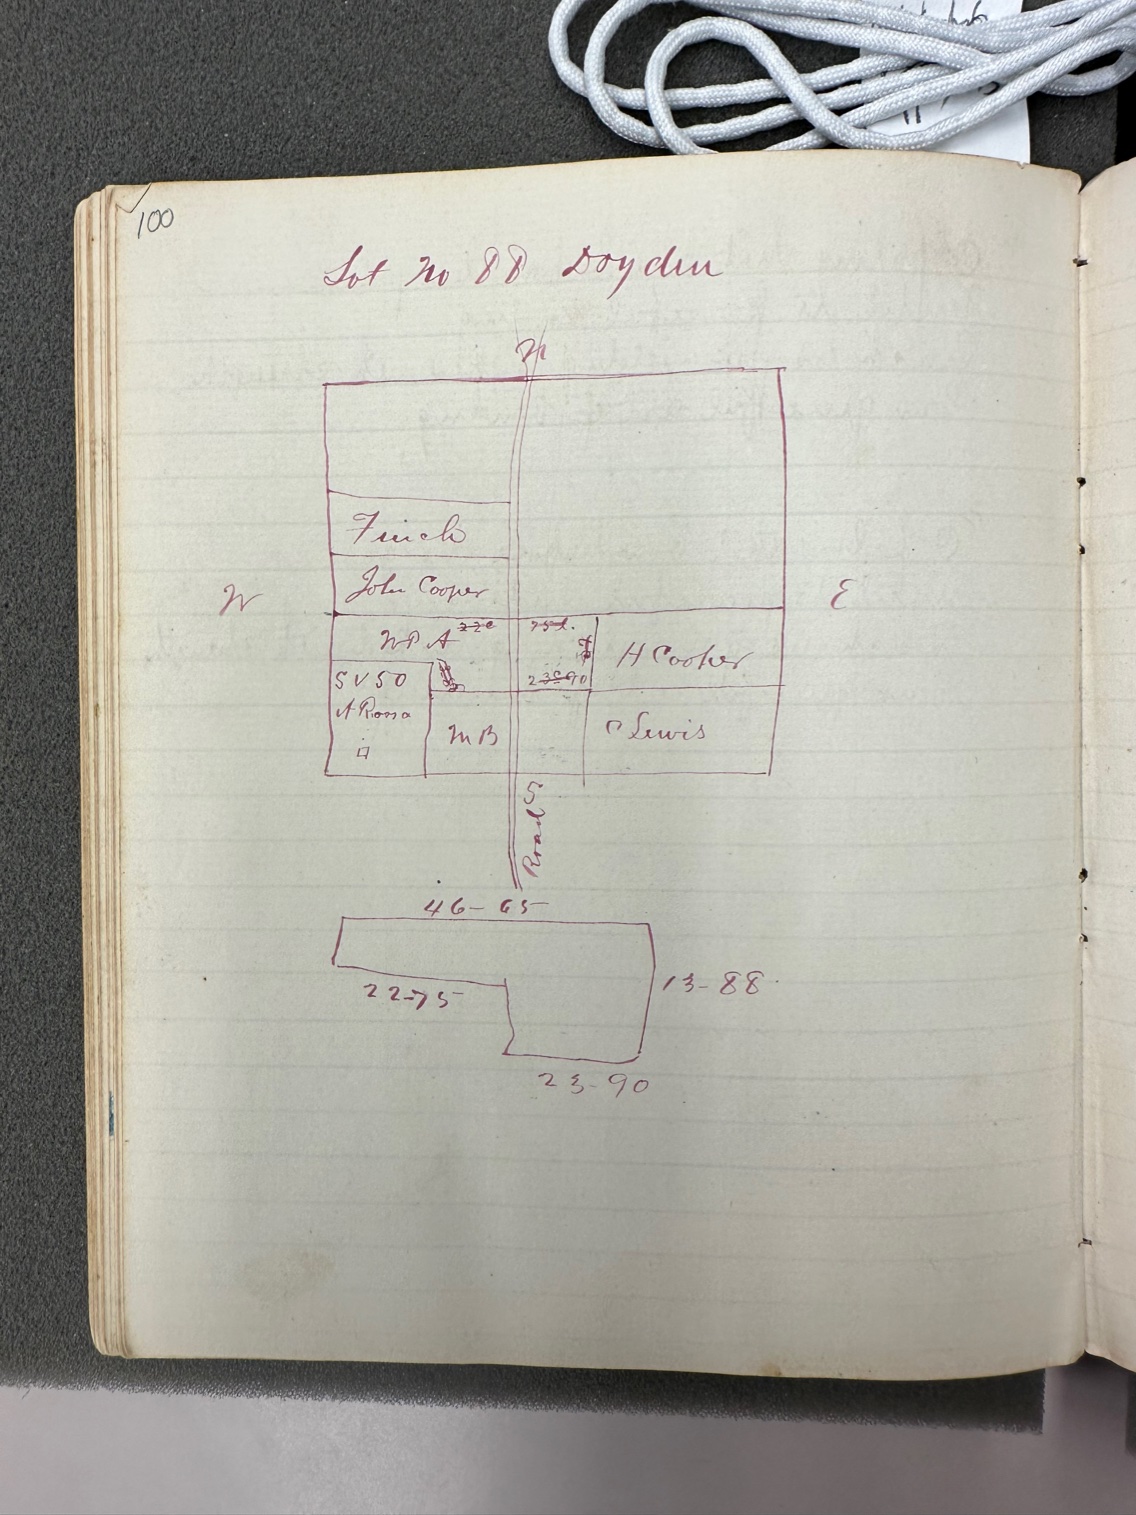 100
Lot No 88 Doyden
N
Finch
John Cooper
W
E
H Cooper
SV50
A Rossa
MB
C Lewis
23-90
Road S
46-65
22-75
13-88
23-90